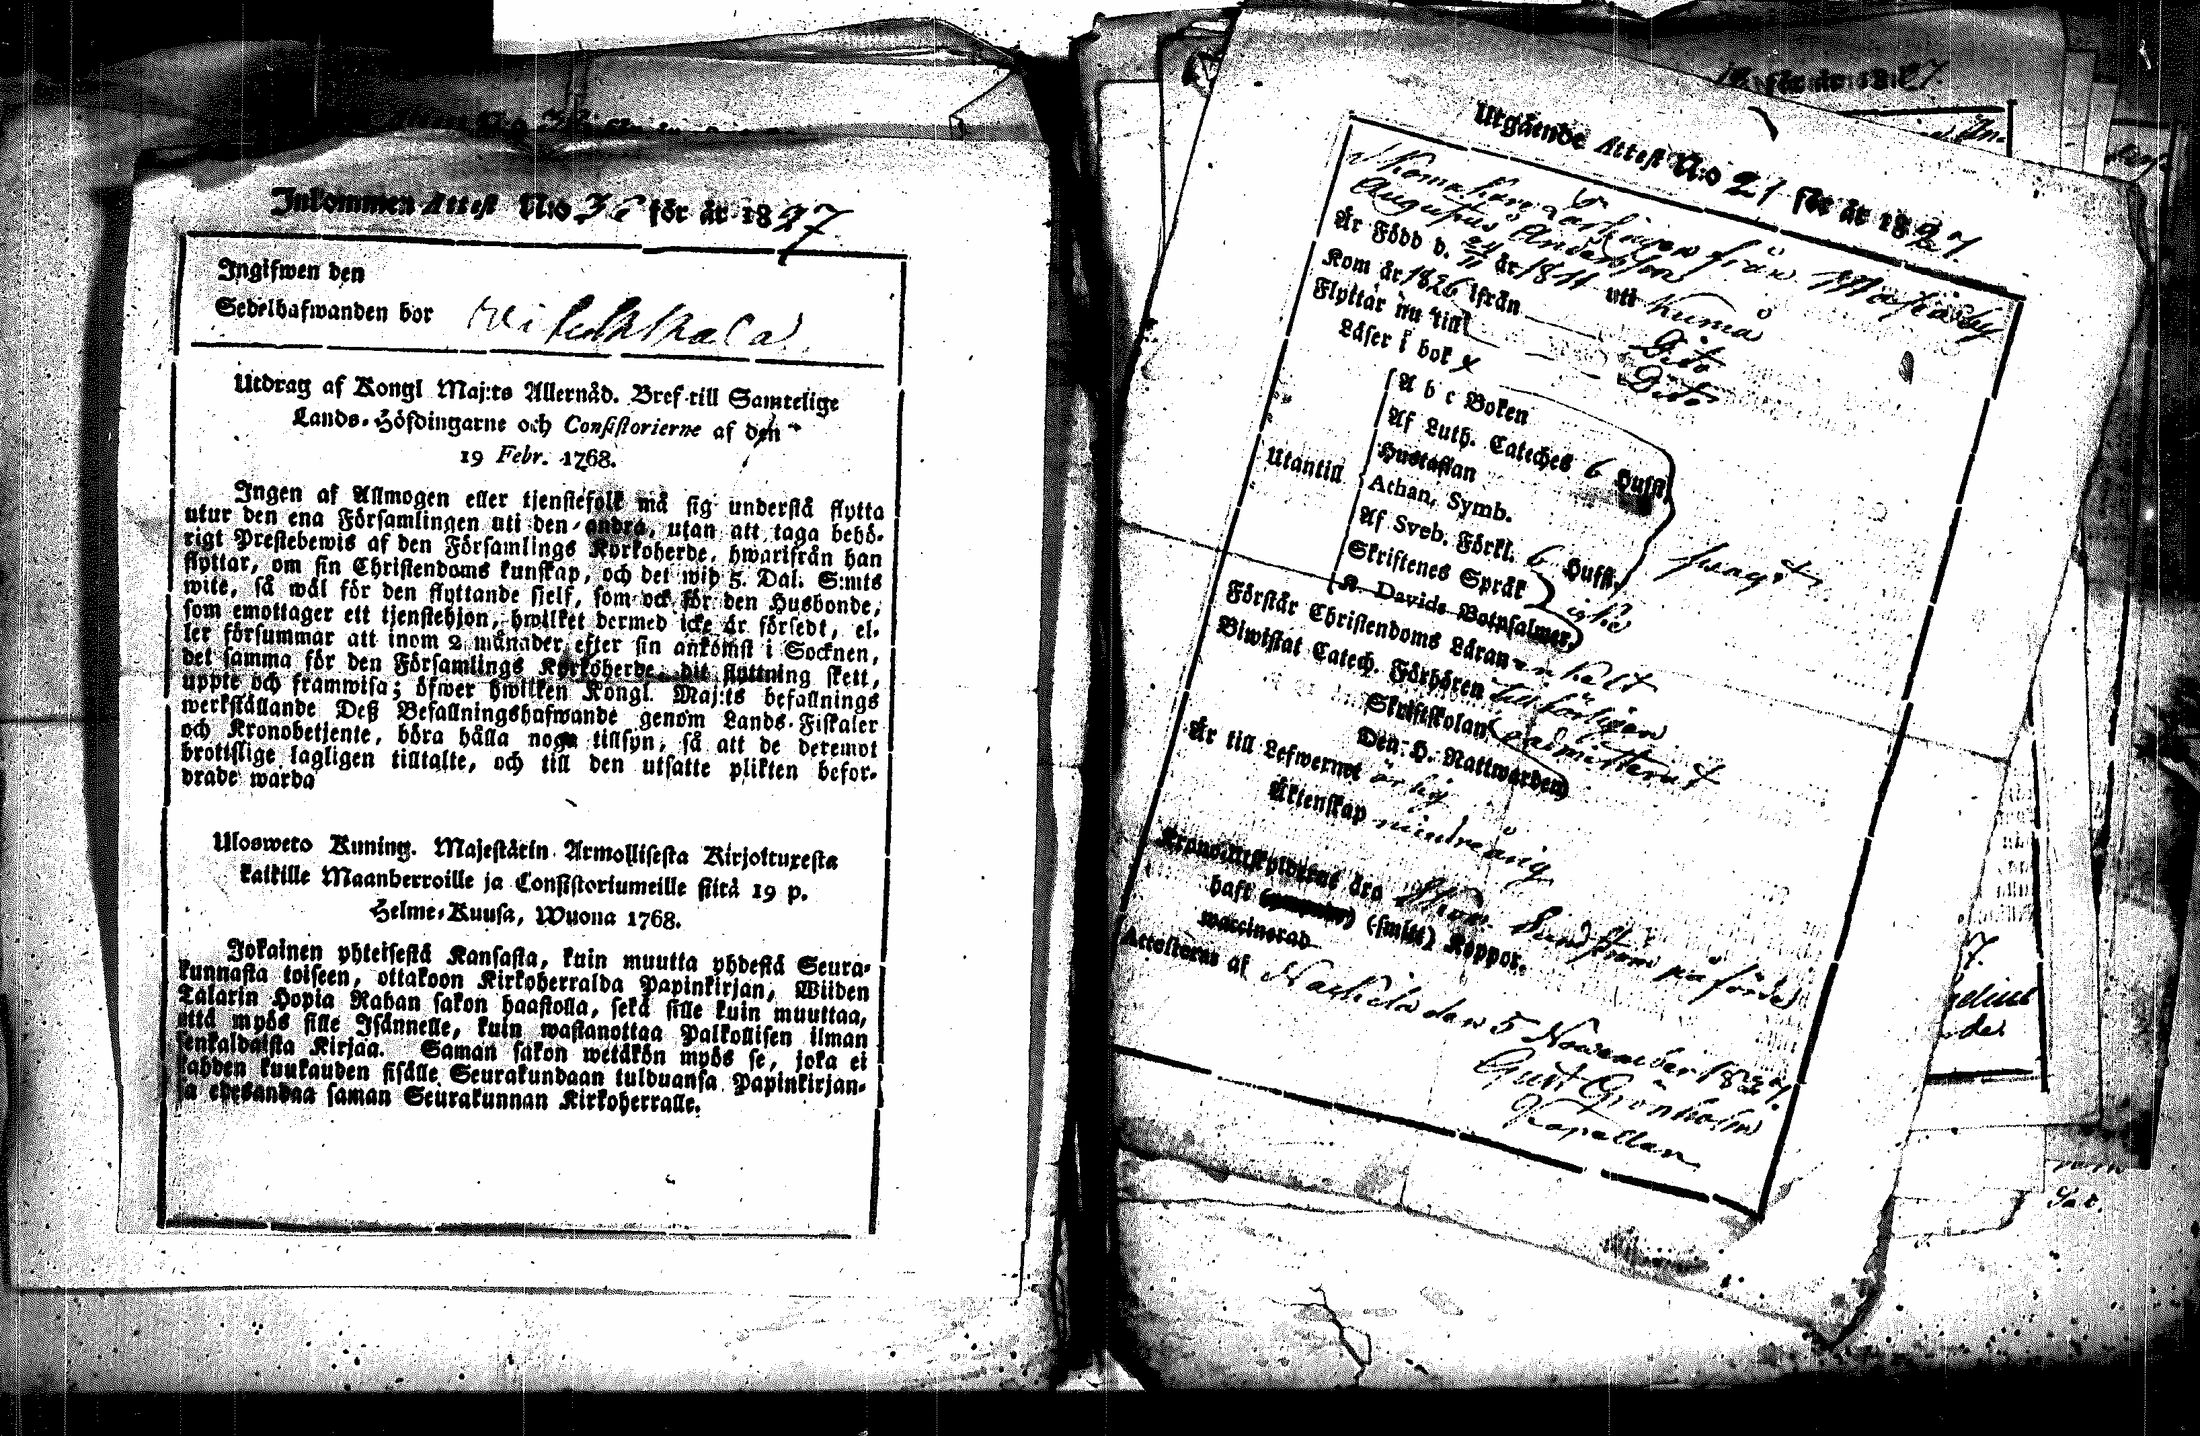 Inkommen Attest N:o 36 för år 1827
Ingifwen den
Sedelhafwanden bor
Utdrag af Kongl Maj:ts Allernåd. Bref till Samtelige
Lands-Höfdingarne och Consistorierne af den
19 Febr. 1768.
Ingen af Allmogen eller tjenstefolk må sig understå flytta
utur den ena Församlingen uti den andra, utan att taga behö-
rigt Prestebewis af den Församlings Kyrkoherde, hwarifrån han
flyttar, om sin Christendoms kunskap, och det wid 5. Dal. S:mts
wite, så wäl för den flyttande sielf, som ock för den Husbonde,
som emottager ett tjenstehjon, hwilket dermed icke är försedt, el-
ler försummar att inom 2 månader efter sin ankomst i Socknen,
det samma för den Församlings Kyrkoherde, dit flyttning skett,
uppte och framwisa; öfwer hwilken Kongl. Maj:ts befallnings
werkställande Deß Befallningshafwande genom Lands-Fiskaler
och Kronobetjente, böra hålla noga tillsyn, så att de deremot
brottslige lagligen tilltalte, och till den utsatte plikten befor-
drade warda
Ulosweto Kuning. Majestätin Armollisesta Kirjoituxesta
kaikille Maanherroille ja Consistoriumeille siitä 19 p.
Helme-Kuusa, Wuona 1768.
Jokainen yhteisestä Kansasta, kuin muutta yhdestä Seura-
kunnasta toiseen, ottakoon Kirkoherralda Papinkirjan, Wiiden
Talarin Hopia Rahan sakon haastolla, sekä sille kuin muuttaa,
että myös sille Isännelle, kuin wastanottaa Palkollisen ilman
senkaldaista Kirjaa. Saman sakon wetäkön myös se, joka ei
kahden kuukauden sisälle Seurakundaan tulduansa Papinkirjan-
sa edesandaa saman Seurakunnan Kirkoherralle.
för år 1827
Utgående Attest N:o 21 för år 1827
från
Augustus Andersson
År Född d. 24/11 år 1811 uti Kumo
Kom år 1826 ifrån Dito
Flyttar nu till Dito
Läser i bok
Utantill
A b c Boken
Af Luth. Cateches 6 Hufst.
Hustaflan
Athan. Symb.
Af Sveb. Förkl. 6 Hufst.
Skriftenes Språk
K. Davids Botpsalmer,
Förstår Christendoms Läran enkelt
Biwistat Catech. Förhören
Skriftskolan admitterat
Den H. Nattwarden
Är till Lefwernet ärlig
Äktenskap
Krono-Utskylderne äro
haft (smitt) Koppor.
waccinerad
Attesteras af den 5 November 1827.
Gust Grönholm
Kapellan